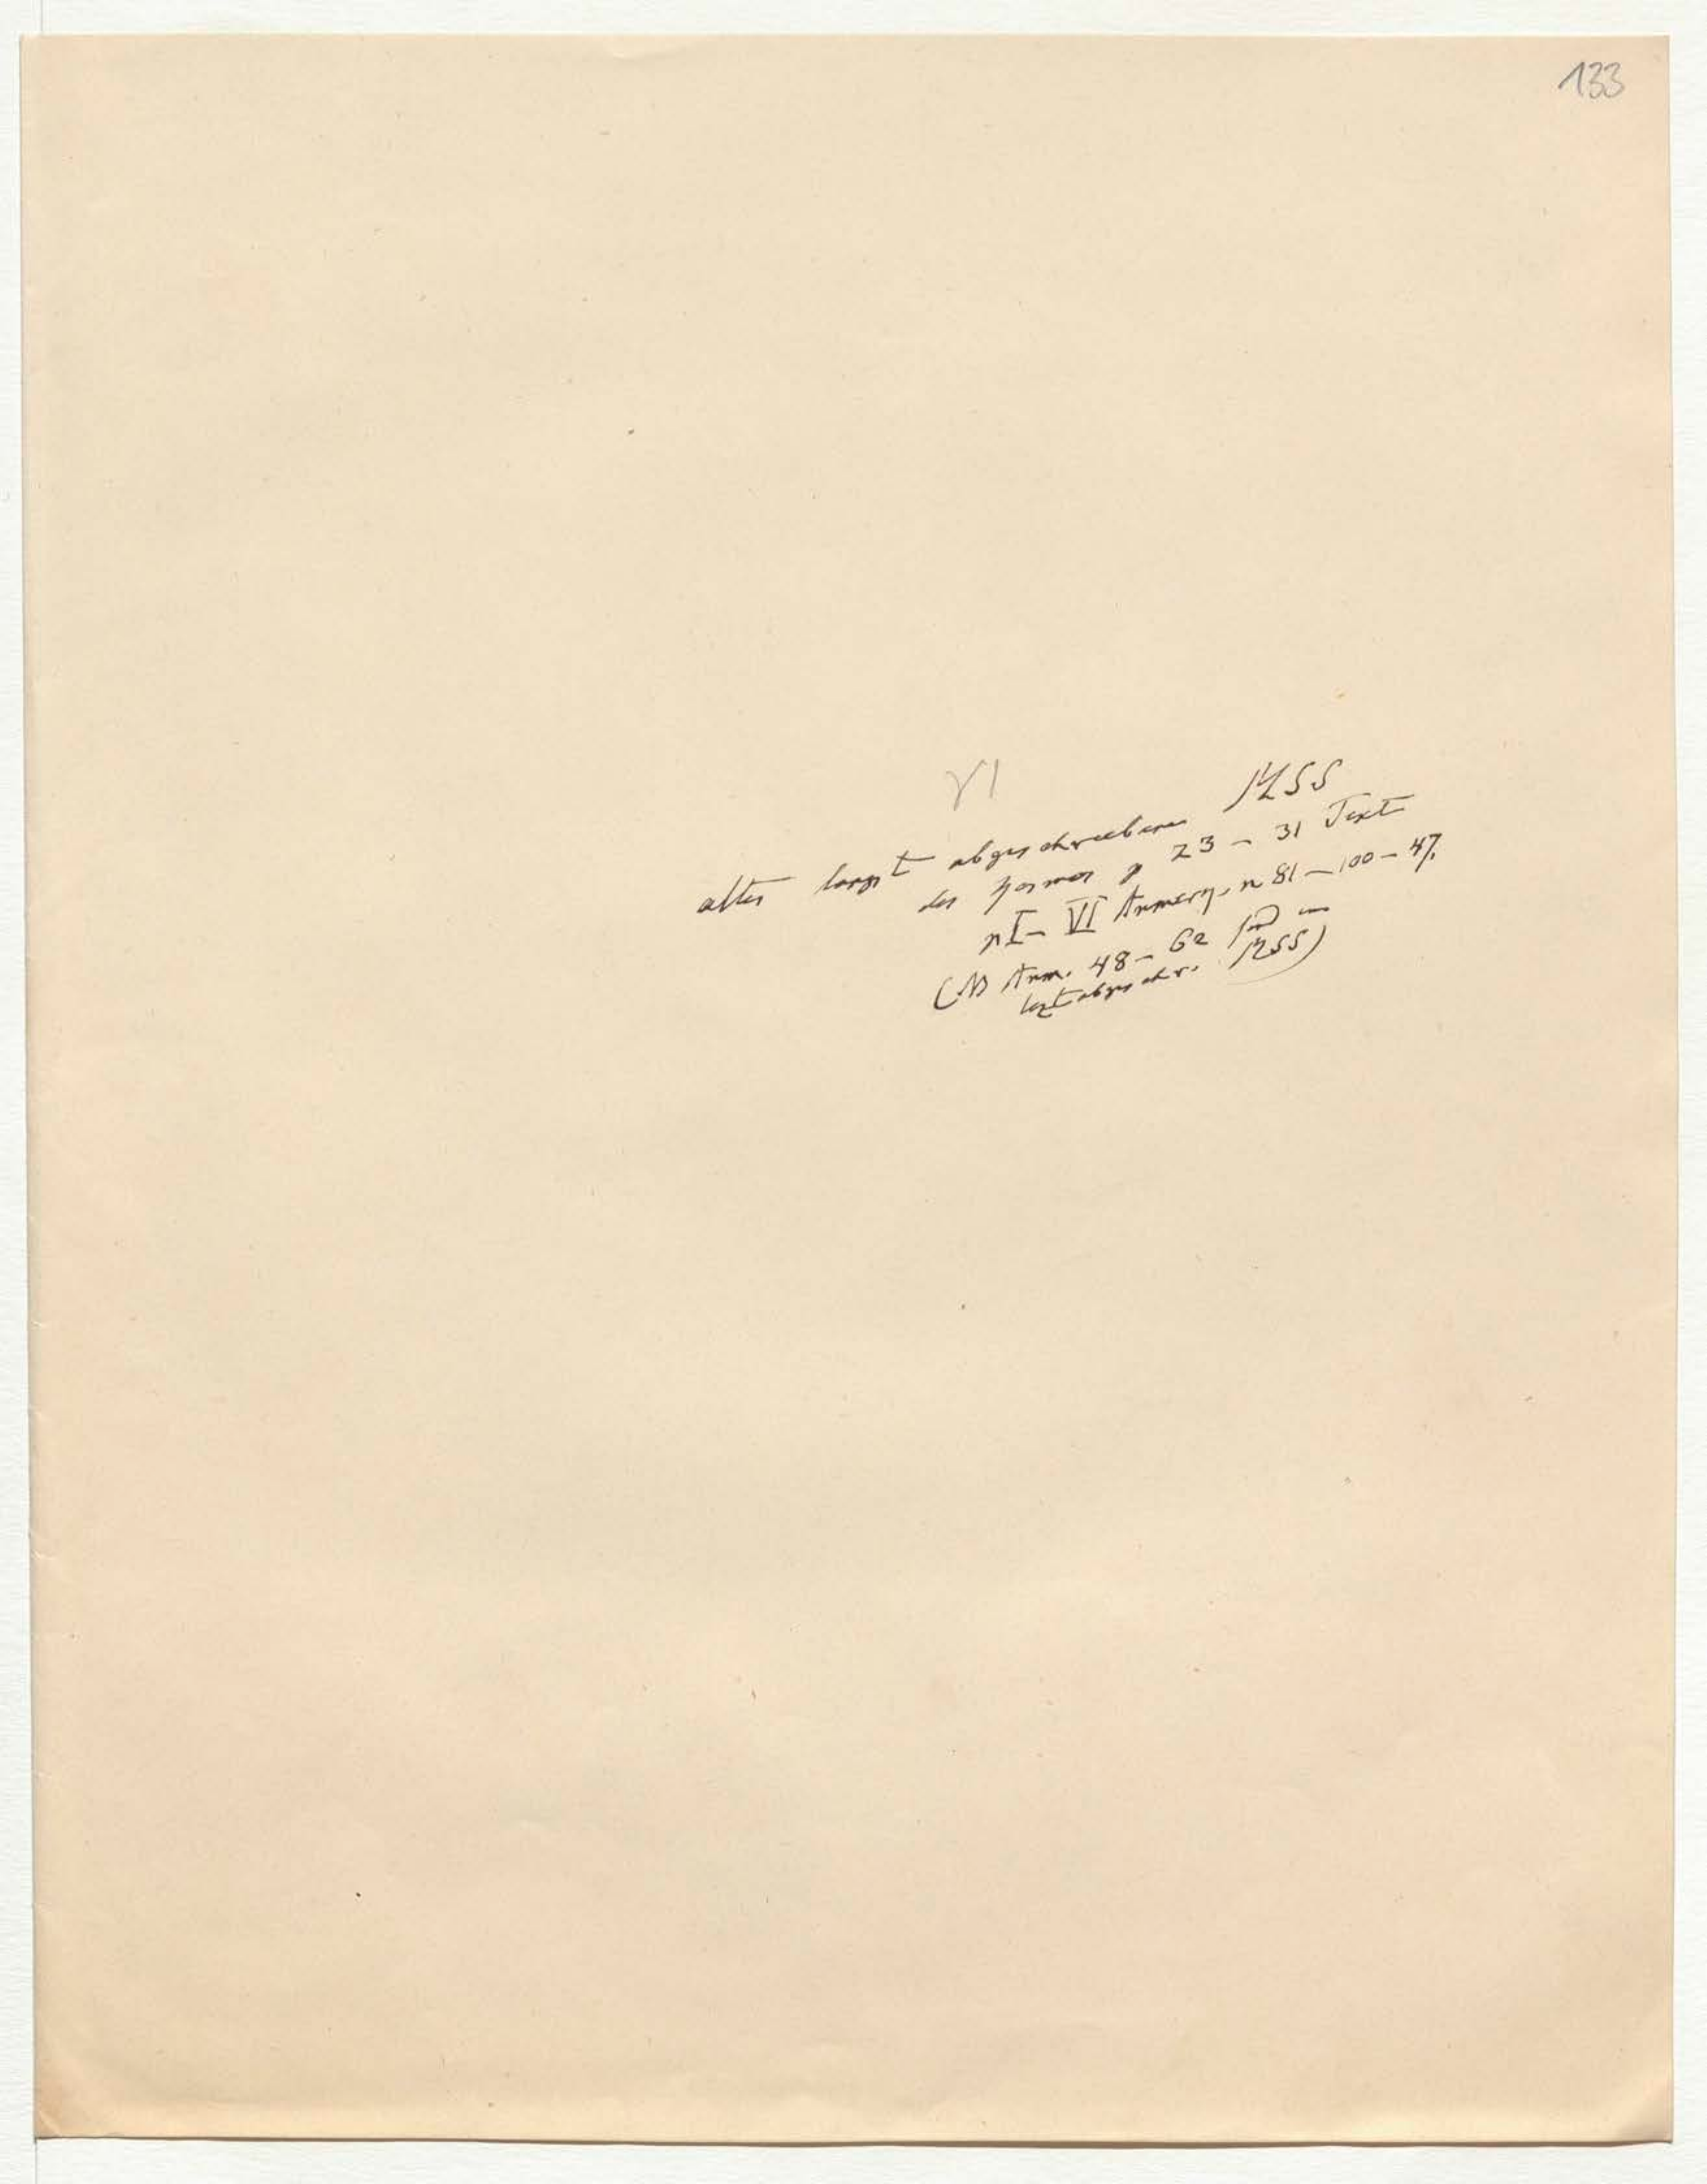 133
VI
altes längst abgeschriebenes MSS
des p 23 – 31 Text
n I – VI Anmerg. n 81 – 100 – 47.
(NB Anm. 48 – 62 sind im
abgeschr. MSS)